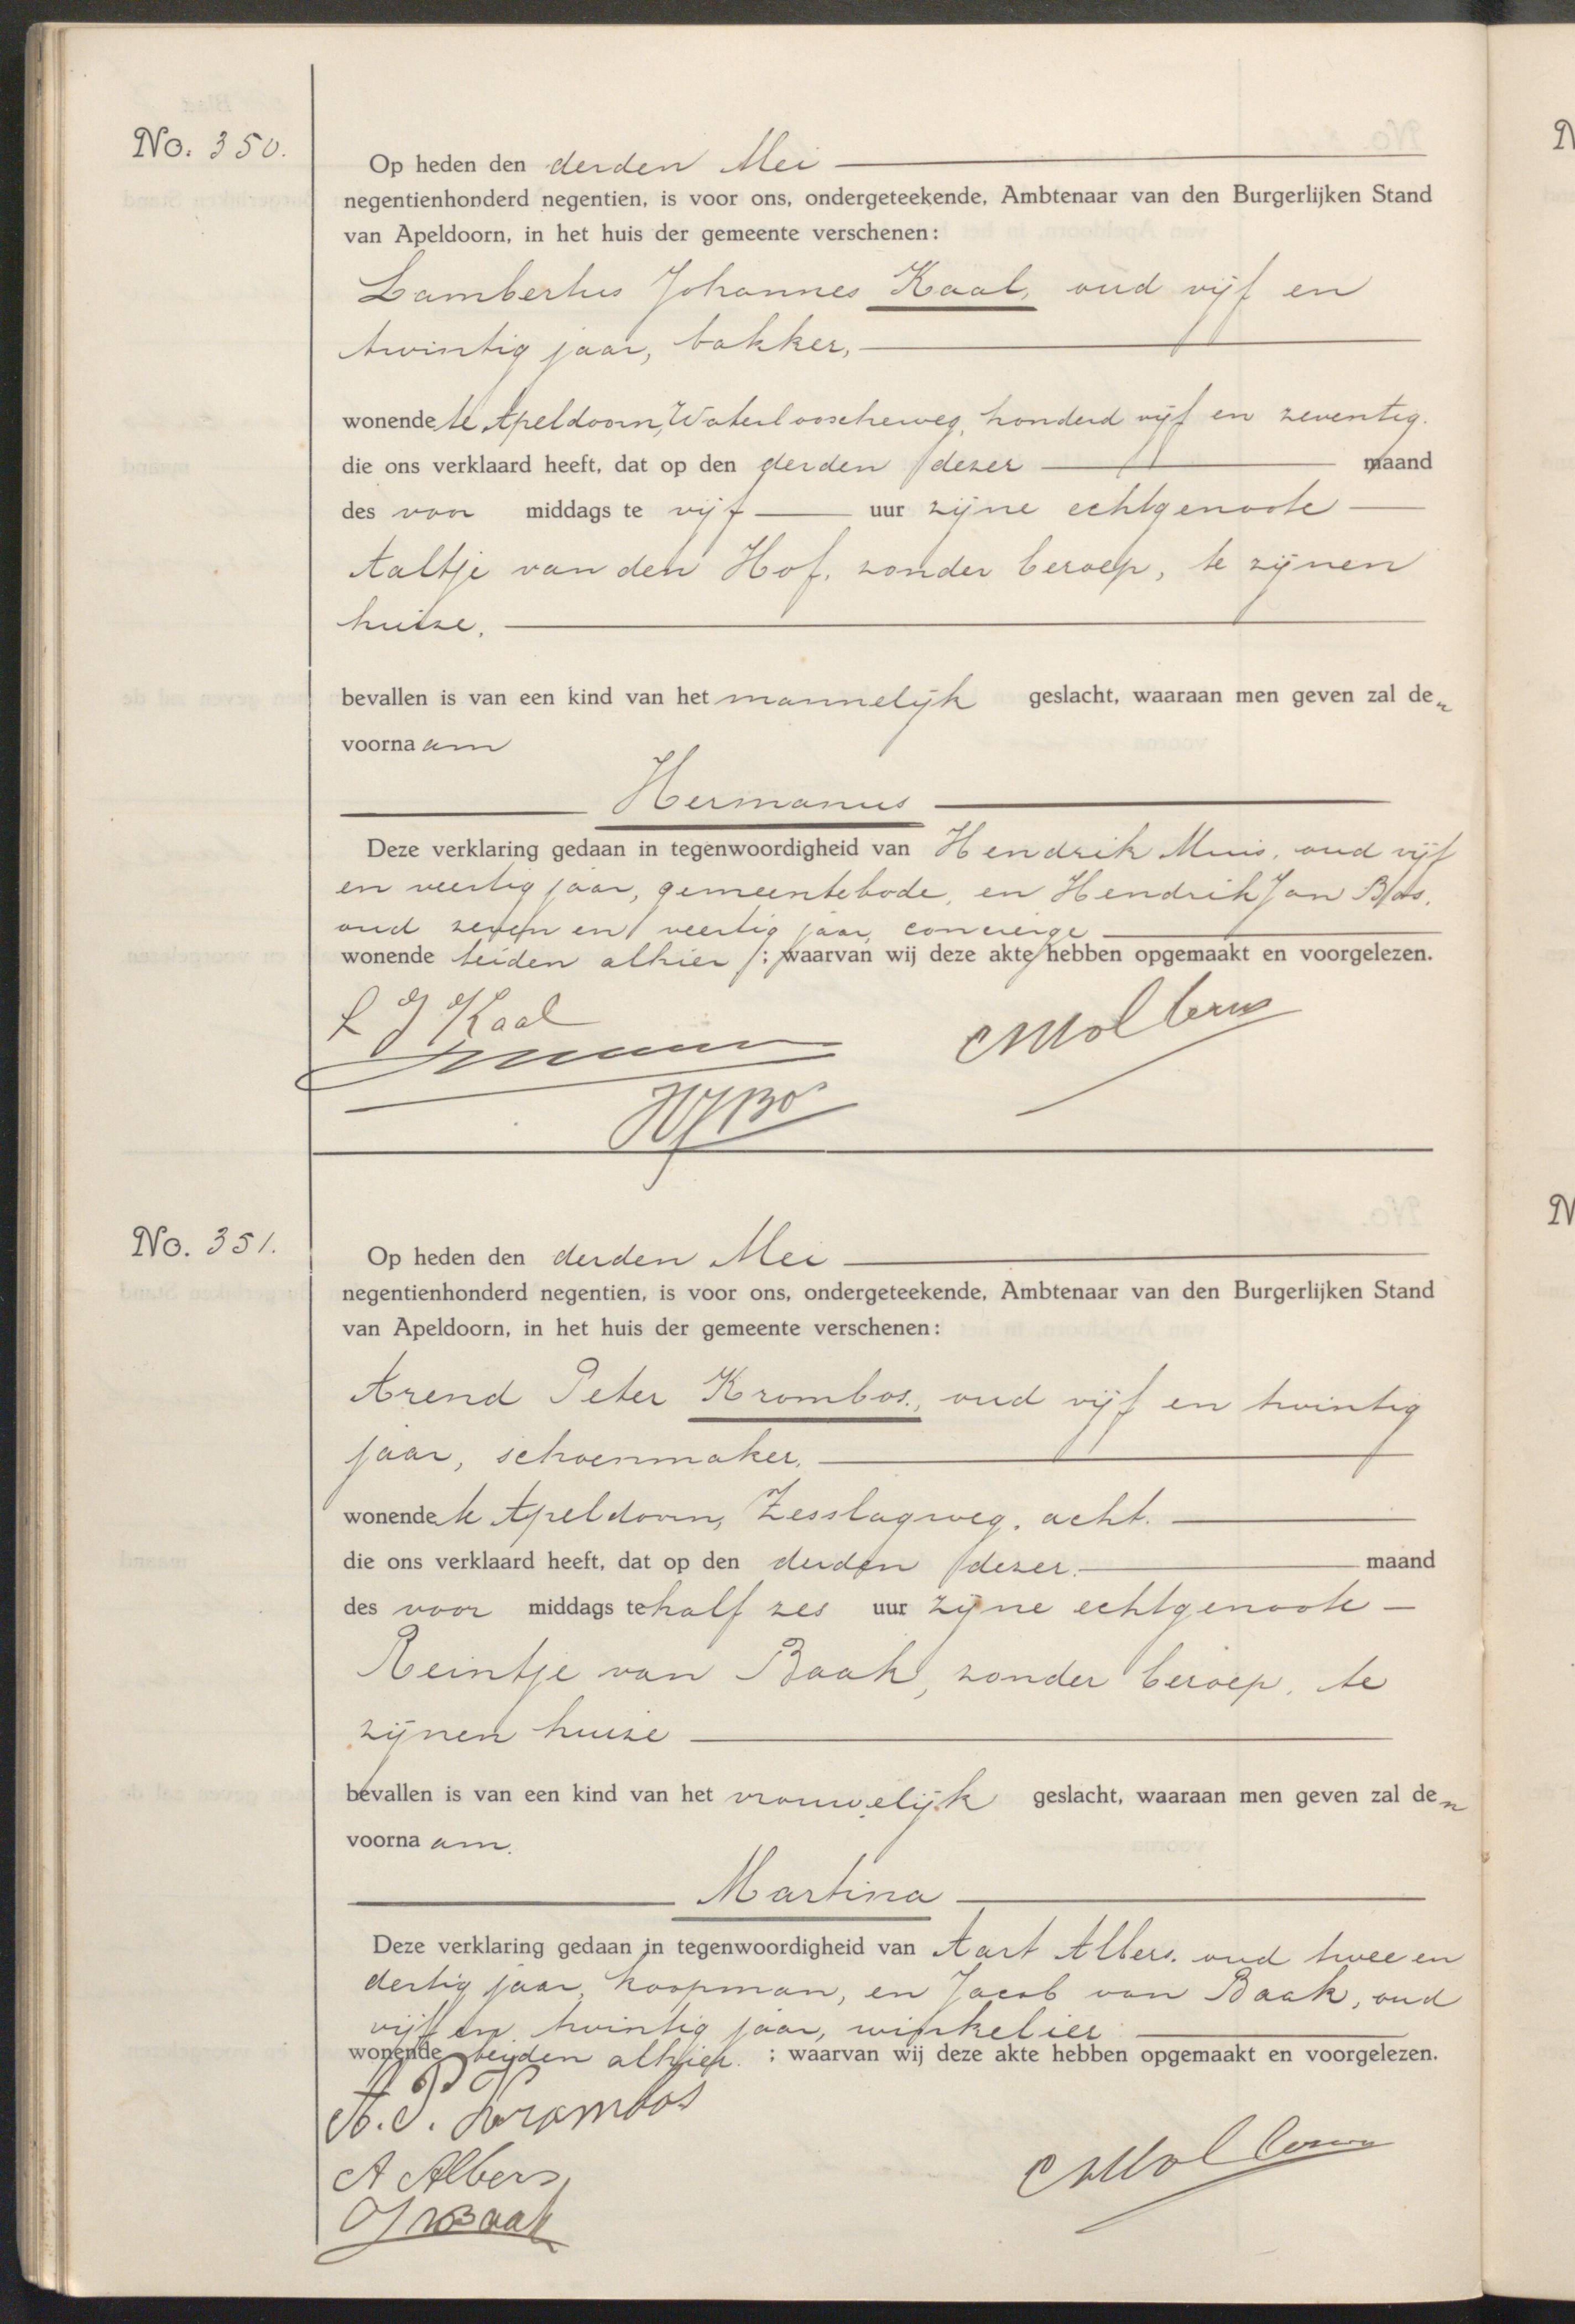 No. 350.
Op heden den derden Mei
negentienhonderd negentien, is voor ons, ondergeteekende, Ambtenaar van den Burgerlijken Stand
van Apeldoorn, in het huis der gemeente verschenen:
Lambertus Johannes Kaal, oud vijf en
twintig jaar, bakker,
wonende te Apeldoorn, Waterlooscheweg, honderd vijf en zeventig.
die ons verklaard heeft, dat op den derden dezer maand
des voor middags te vijf uur zijne echtgenoote
Aaltje van den Hof, zonder beroep, te zijnen
huize.
bevallen is van een kind van het mannelijk geslacht, waaraan men geven zal den
voornaam
Hermanus
Deze verklaring gedaan in tegenwoordigheid van Hendrik Muis, oud vijf
en veertig jaar, gemeentebode, en Hendrik Jan Bos,
oud zeven en veertig jaar, concierge
wonende beiden alhier ; waarvan wij deze akte hebben opgemaakt en voorgelezen.
L J Kaal
HJBos
No. 351.
Op heden den derden Mei
negentienhonderd negentien, is voor ons, ondergeteekende, Ambtenaar van den Burgerlijken Stand
van Apeldoorn, in het huis der gemeente verschenen:
Arend Peter Krombos, oud vijf en twintig
jaar, schoenmaker,
wonende te Apeldoorn, Zesslagweg, acht.
die ons verklaard heeft, dat op den derden dezer maand
des voor middags te half zes uur zijne echtgenoote
Reintje van Baak, zonder beroep, te
zijnen huize
bevallen is van een kind van het vrouwelijk geslacht, waaraan men geven zal den
voornaam.
Martina
Deze verklaring gedaan in tegenwoordigheid van Aart Albers, oud twee en
dertig jaar, koopman, en Jacob van Baak, oud
vijf en twintig jaar, winkelier
wonende beiden alhier. ; waarvan wij deze akte hebben opgemaakt en voorgelezen.
A. P. Krombos
A Albers
J v Baak